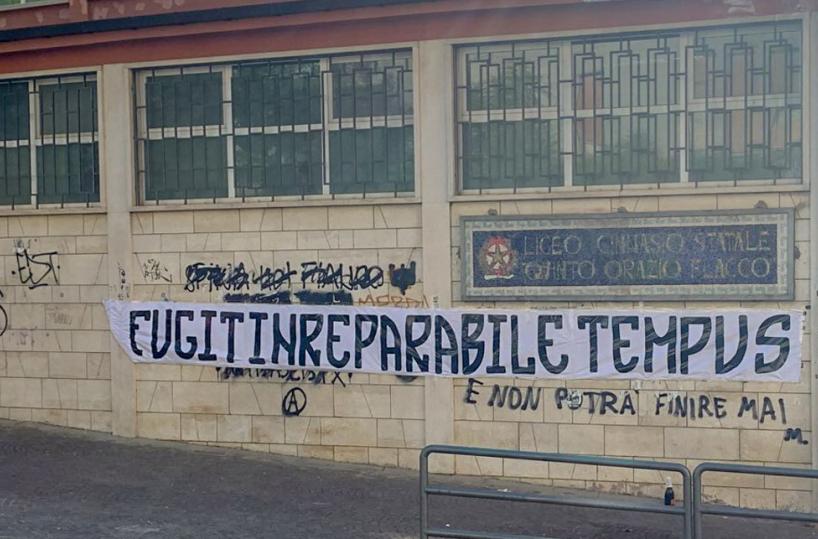 LICEO GINNASIO STATALE
QUINTO ORAZIO FLACCO
FUGIT INREPARABILE TEMPUS
E NON POTRA' FINIRE MAI
M.
A